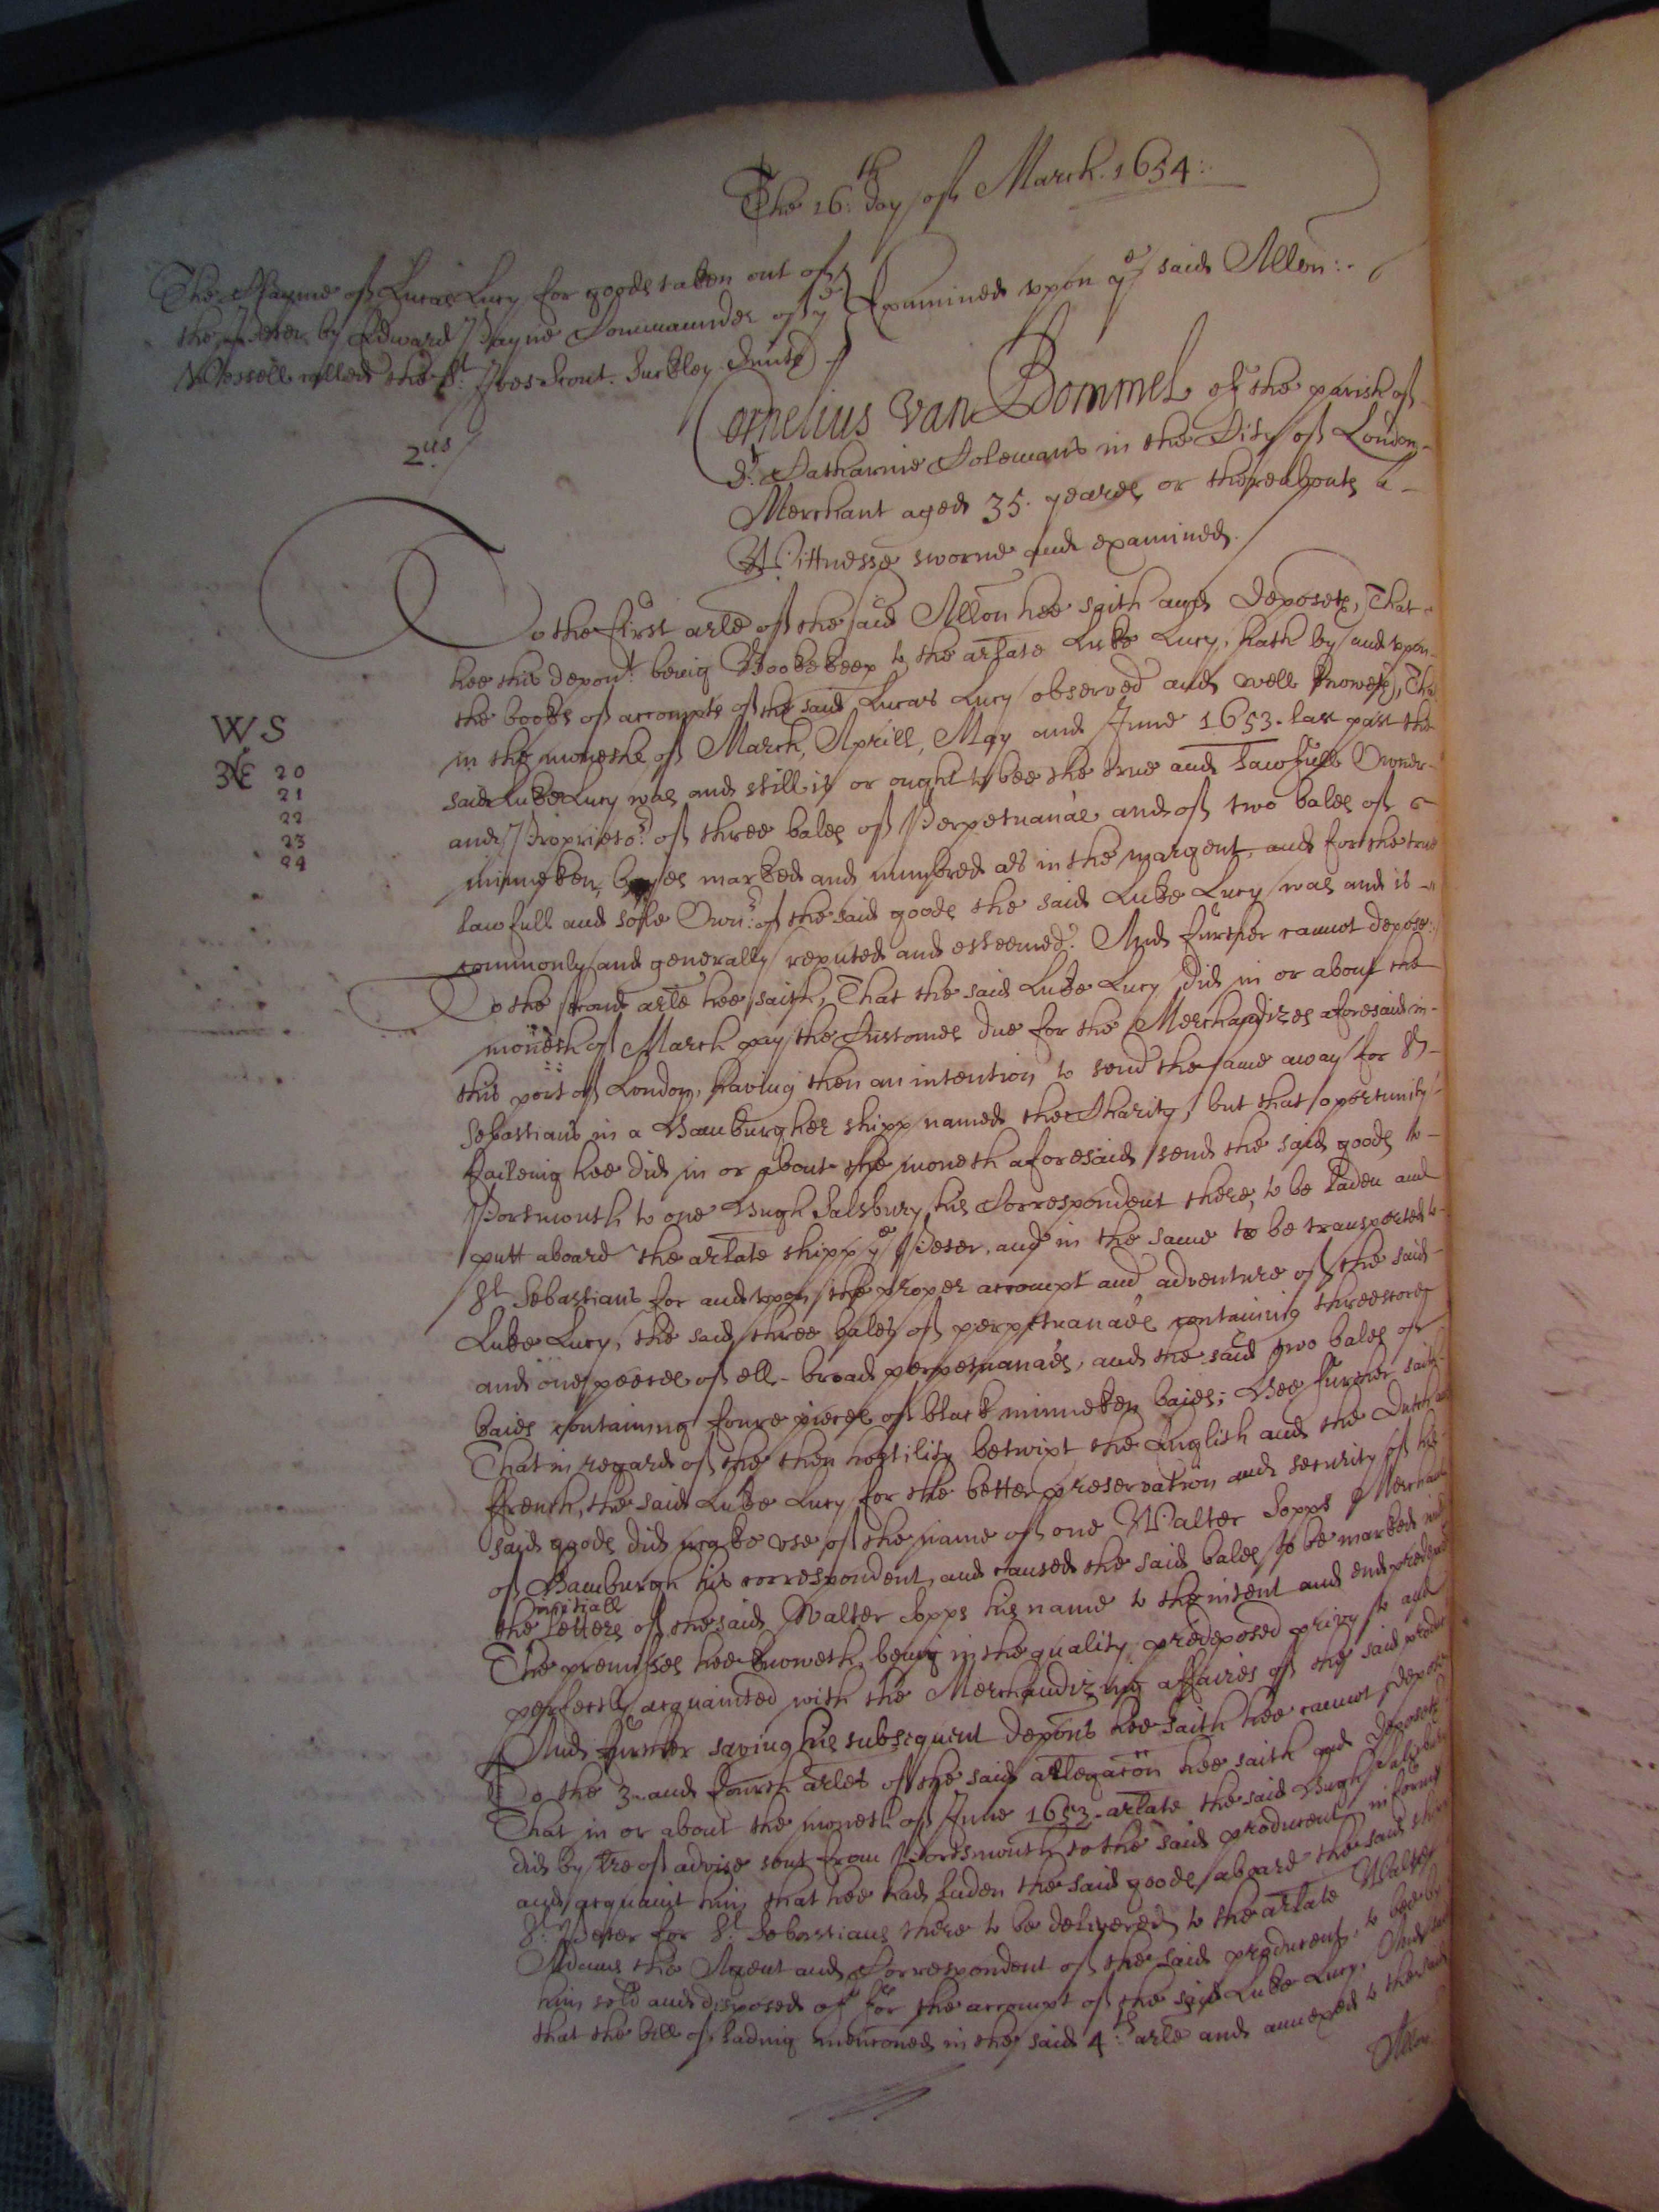 The 16:th day of March. 1654:.
The Clayme of Lucas Lucy for goods taken out of
the Peter by Edward Payne Commaunder of ye
Vessell called the St. Yves Smith. Suckley.
Examined upon ye said Allon:.
2us
Cornelius Van Bommel of the parish of
St. Catharine Colemans in the City of London
Merchant aged 35. yeares or thereabouts a
Wittnesse sworne and examined.
To the first arle of the said Allon hee saith and deposeth, That
hee this depont. being Bookekeep to the arlate Luke Lucy, hath by and upon
the books of accompts of the said Lucas Lucy observed and well knoweth, That
in the moneths of March, Aprill, May and June 1653. last past the
said Luke Lucy was and still is or ought to bee the true and lawfull Owner
and Proprietor. of three bales of Perpetuanaes and of two bales of
minneken bayes marked and numbred as in the margent, and for the true
WS
20
21
22
23
24
lawfull and sole Ownr. of the said goods the said Luke Lucy was and is
commonly and generally reputed and esteemed. And further cannot depose:
To the second arle hee saith, That the said Luke Lucy did in or about the
moneth of March pay the Customes due for the Merchandizes aforesaid in
this port of London, having then an intention to send the same away for St
Sebastians in a Hamburgher shipp named the Charity, but that oportunity
faileing hee did in or about the moneth aforesaid send the said goods to
Portsmouth to one Hugh Salsbury his Correspondent there, to be laden and
putt aboard the arlate shipp ye Peter, and in the same to be transported to
St Sebastians for and upon the proper accompt and adventure of the said
Luke Lucy, the said three bales of perpetuanaes containing threescore
and one peeces of ell-broad perpetuanaes, and the said two bales of
baies containing foure pieces of black minneken baies; Hee further saith
That in regard of the then hostility betwixt the English and the Dutch and
ffrench, the said Luke Lucy for the better preservation and security of his
said goods did make use of the name of one Walter Sopps Merchant
of Hamburgh his correspondent, and caused the said bales to be marked with
the initiall letters of the said Walter Sopps his name to the intent and end predeposed
The premisses hee knoweth being in the quality predeposed privy to and
perfectly acquainted with the Merchandizing affaires of the said producent
And further saving his subsequent depons hee saith hee cannot depose
To the 3. and fourth arles of the said allegacon hee saith and deposeth
That in or about the moneth of June 1653. arlate the said Hugh Salisbury
did by lre of advise sent from Portsmouth to the said producent informe
and acquaint him that hee had laden the said goods aboard the said shipp
St. Peter for St. Sebastians there to be delivered to the arlate Walter
Adams the Agent and Correspondent of the said producent, to bee by
him sold and disposed of for the accompt of the said Luke Lucy, And
that the bill of lading mencioned in the said 4th. arle and annexed to the said
Allon